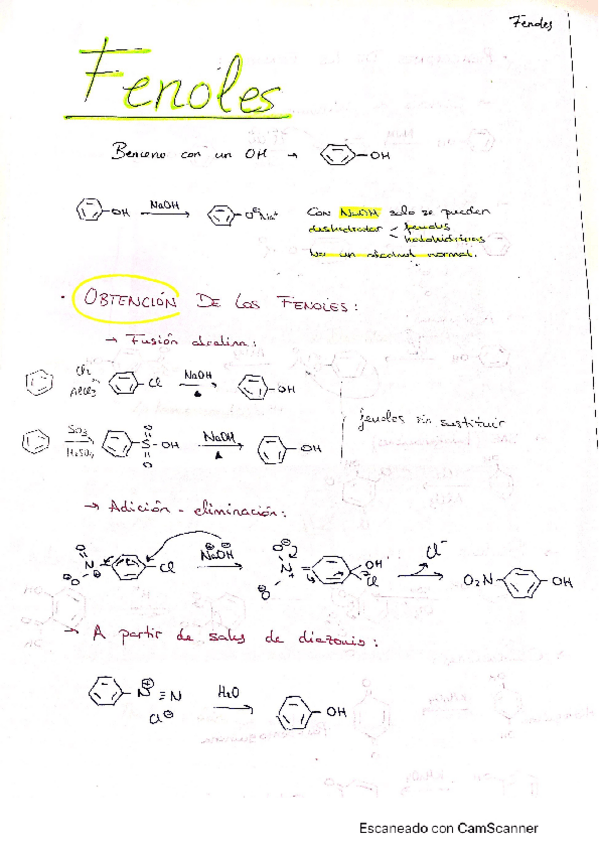 Fenoles
Fenoles
Benceno con un OH → -OH
-OH NaOH → -O⊖Na⁺
Con NaOH solo se pueden
deshidratar < fenoles
halohidrinas
No un alcohol normal.
· OBTENCIÓN DE LOS FENOLES:
→ Fusión alcalina:
Cl₂ AlCl₃ -Cl NaOH → -OH
SO₃ H₂SO₄ O S -OH O NaOH → -OH
fenoles sin sustituir
→ Adición - eliminación:
O N O -Cl NaOH → O N⁺ O OH Cl → Cl⁻ O₂N- -OH
→ A partir de sales de diazonio:
-N⊕≡N Cl⊖ H₂O → -OH
Escaneado con CamScanner